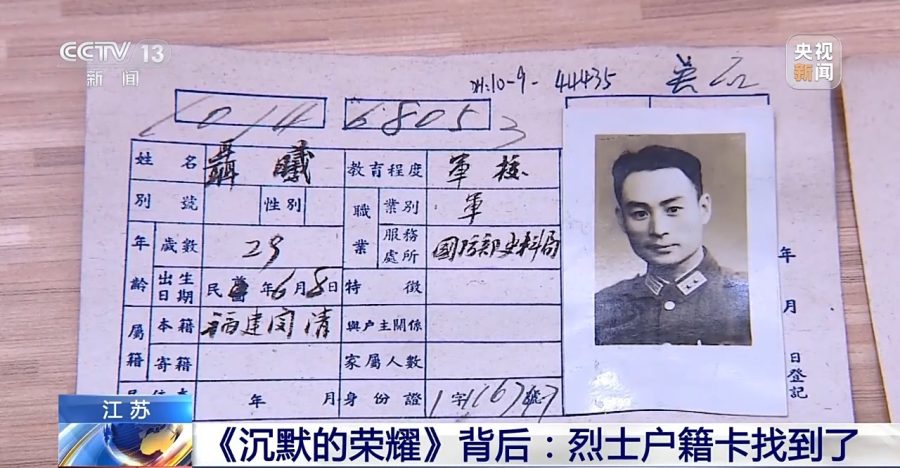 CCTV 13
新闻
央视
新闻
44435
1014 6805 3
姓名 聶曦 教育程度 軍校
別號 性別 職業 業別 軍
年齡 歲數 29 服務處所 國防部史料局
出生日期 民 年6月8日 特徵
屬籍 本籍 福建閩清 與戶主關係
寄籍 家屬人數
年 月 身份證 字 號
年
月
日登記
江苏
《沉默的荣耀》背后：烈士户籍卡找到了